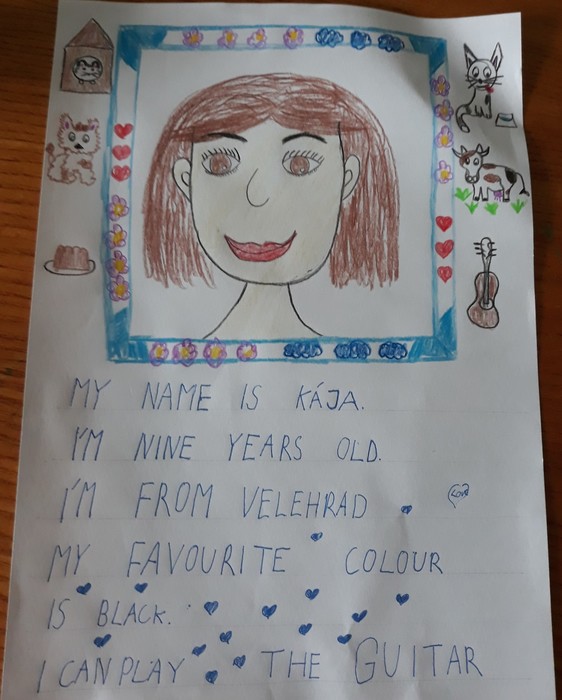 MY NAME IS KÁJA.
I'M NINE YEARS OLD.
I'M FROM VELEHRAD.
MY FAVOURITE COLOUR
IS BLACK.
I CAN PLAY THE GUITAR